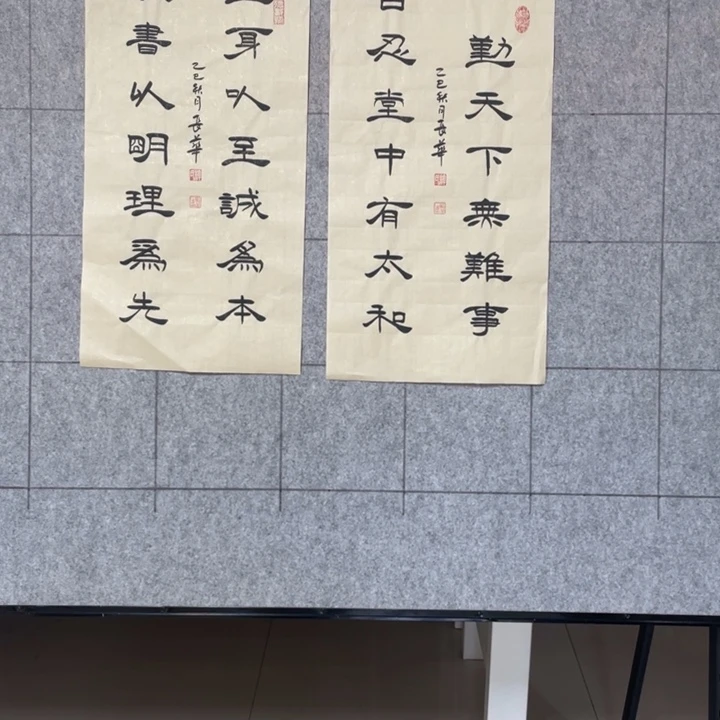 勤天下無難事
忍堂中有太和
乙巳秋月長華
身以至誠爲本
書以明理爲先
乙巳秋月長華